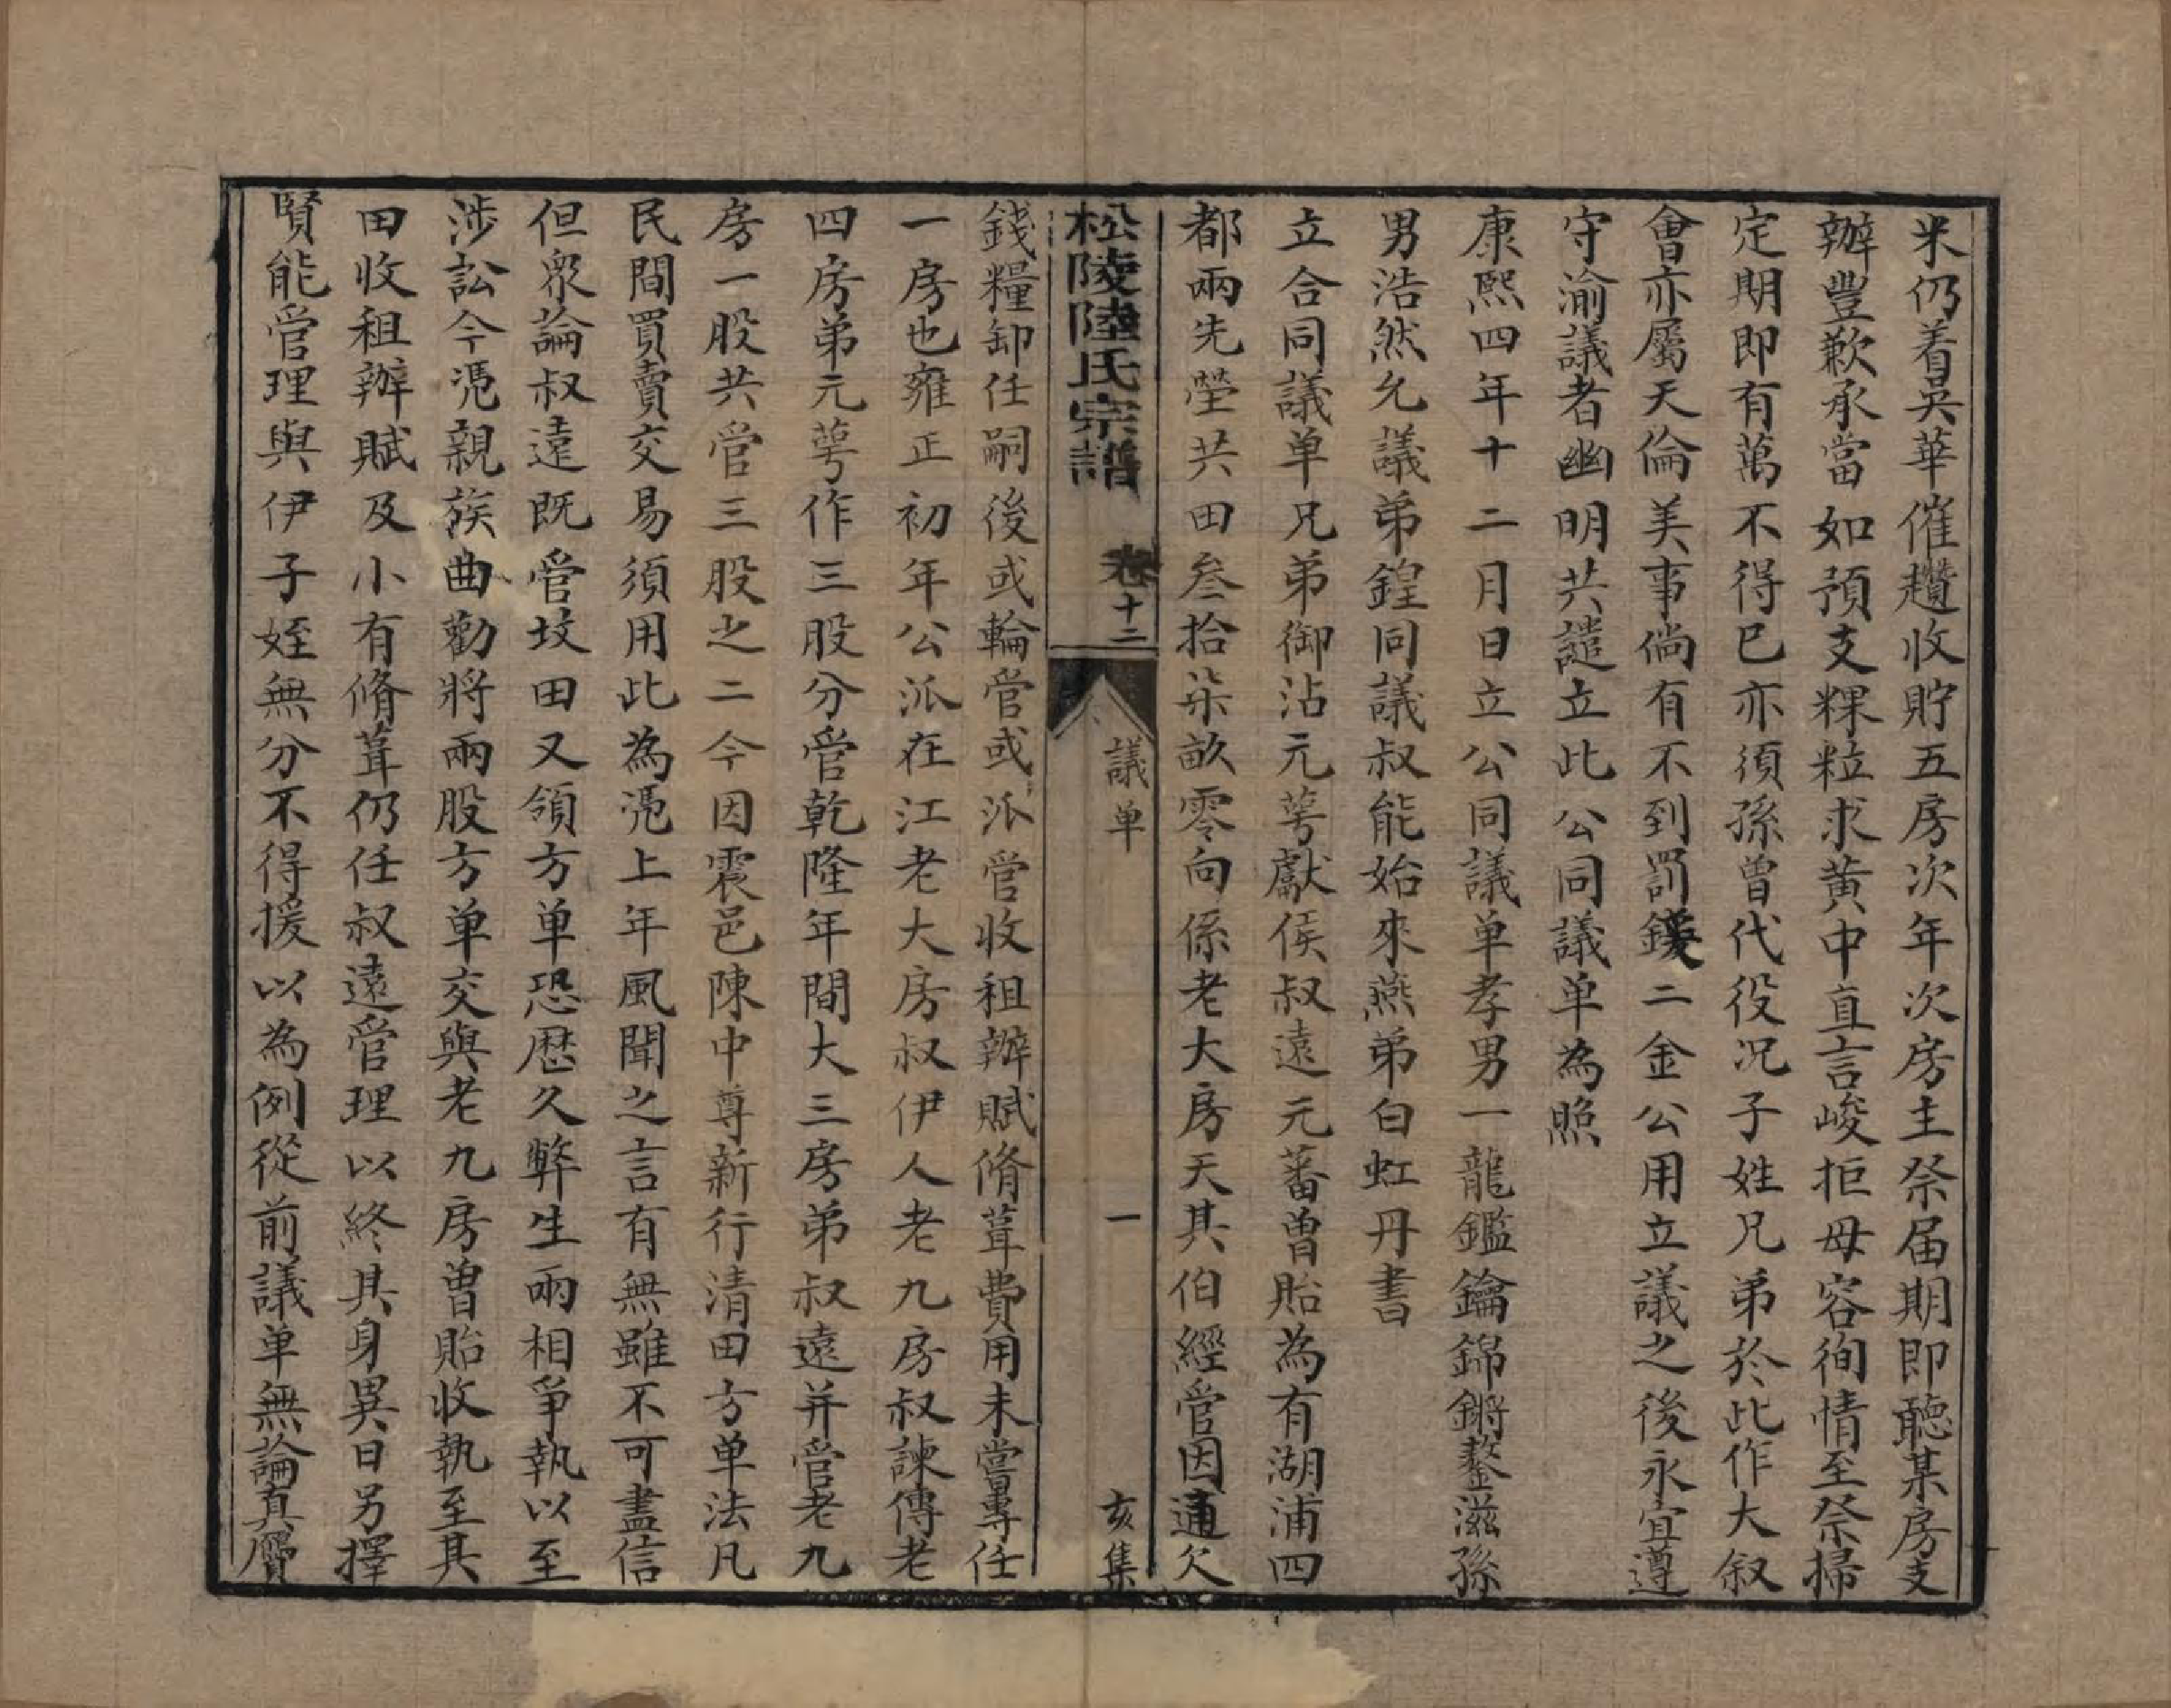 米仍着吳華催趲收貯五房次年次房主祭届期即聽某房支
辦豐歉承當如預支粿粒求黃中直言峻拒毋容徇情至祭掃
定期即有萬不得已亦須孫曾代役况子姓兄弟於此作大叙
會亦屬天倫美事倘有不到罰鍰二金公用立議之後永宜遵
守渝議者幽明共譴立此公同議单為照
康熙四年十二月日立公同議单孝男一龍鑑鑰錦鏘鏊滋孫
男浩然允議弟鍠同議叔能始來燕弟白虹丹書
立合同議单兄弟御沾元萼獻侯叔遠元蕃曾貽為有湖浦四
都兩先塋共田叁拾柒畝零向係老大房天其伯經管因通欠
松陵陸氏宗譜 卷十二 議单 一 亥集
錢糧卸任嗣後或輪管或派管收租辦賦脩葺費用未嘗專任
一房也雍正初年公派在江老大房叔伊人老九房叔諫傳老
四房弟元萼作三股分管乾隆年間大三房弟叔遠并管老九
房一股共管三股之二今因震邑陳中尊新行清田方单法凡
民間買賣交易須用此為凴上年風聞之言有無雖不可盡信
但衆論叔遠既管坟田又領方单恐歷久弊生兩相爭執以至
涉訟今凴親族曲勸將兩股方单交與老九房曾貽收執至其
田收租辦賦及小有脩葺仍任叔遠管理以終其身異日另擇
賢能管理與伊子姪無分不得援以為例從前議单無論真贋